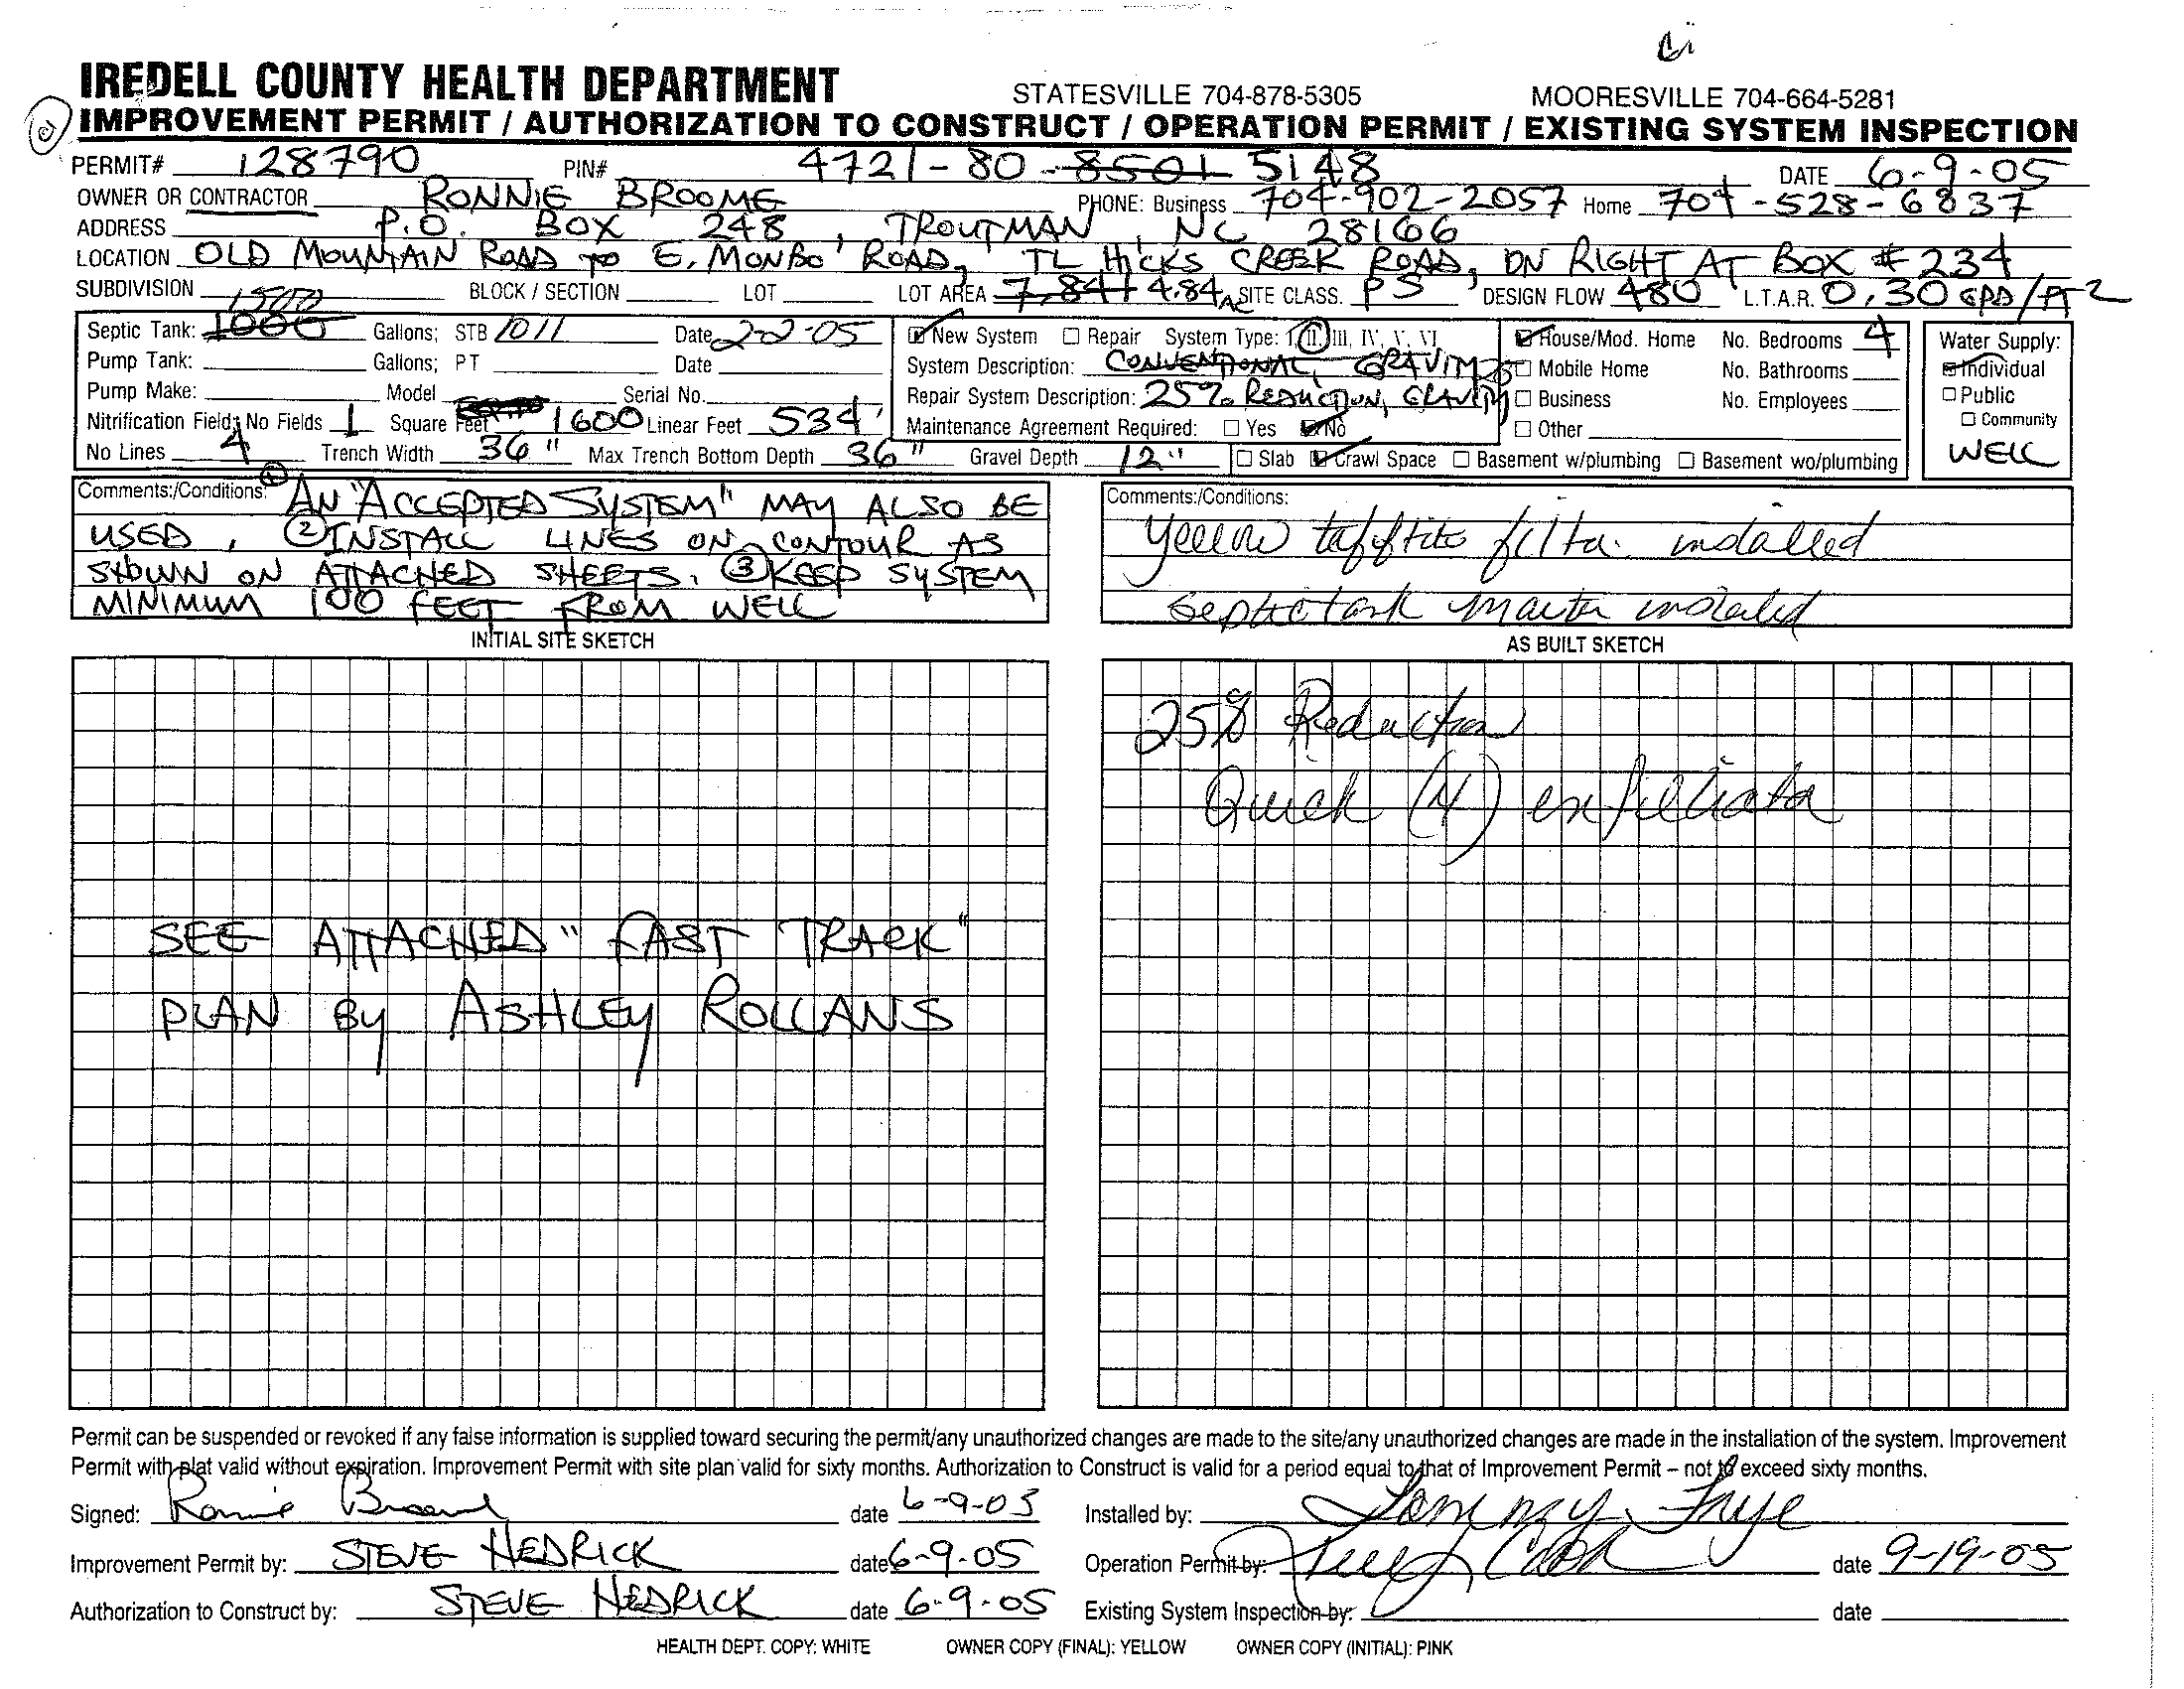 IREDELL COUNTY HEALTH DEPARTMENT STATESVILLE 704-878-5305 MOORESVILLE 704-664-5281
IMPROVEMENT PERMIT / AUTHORIZATION TO CONSTRUCT / OPERATION PERMIT / EXISTING SYSTEM INSPECTION
PERMIT# 128790 PIN# 4721-80-8501 5148 DATE 6-9-05
OWNER OR CONTRACTOR RONNIE BROOME PHONE: Business 704-902-2057 Home 704-528-6837
ADDRESS P.O. BOX 248, TROUTMAN, NC 28166
LOCATION OLD MOUNTAIN ROAD TO E. MONBO ROAD, TL HICKS CREEK ROAD, ON RIGHT AT BOX # 234
SUBDIVISION BLOCK / SECTION LOT LOT AREA 7,841 4.84 AC SITE CLASS. PS DESIGN FLOW 480 L.T.A.R. 0.30 GPD/FT2
1500
Septic Tank: 1000 Gallons; STB 1011 Date 2-2-05
Pump Tank: Gallons; PT Date
Pump Make: Model Serial No.
Nitrification Field: No Fields 1 Square Feet 1600 Linear Feet 534'
No Lines 4 Trench Width 36" Max Trench Bottom Depth 36" Gravel Depth 12"
New System Repair System Type: I, II, III, IV, V, VI
System Description: CONVENTIONAL, GRAVITY
Repair System Description: 25% REDUCTION, GRAVITY
Maintenance Agreement Required: Yes No
House/Mod. Home No. Bedrooms 4
Mobile Home No. Bathrooms
Business No. Employees
Other
Slab Crawl Space Basement w/plumbing Basement wo/plumbing
Water Supply:
Individual
Public
Community
WELL
Comments:/Conditions: ① AN "ACCEPTED SYSTEM" MAY ALSO BE
USED, ② INSTALL LINES ON CONTOUR AS
SHOWN ON ATTACHED SHEETS, ③ KEEP SYSTEM
MINIMUM 100 FEET FROM WELL
Comments:/Conditions:
Yellow filter installed
Septic tank installed
INITIAL SITE SKETCH
SEE ATTACHED "FAST TRACK"
PLAN BY ASHLEY ROLLANS
AS BUILT SKETCH
25% Reduction
Quick (4) enfiltrator
Permit can be suspended or revoked if any false information is supplied toward securing the permit/any unauthorized changes are made to the site/any unauthorized changes are made in the installation of the system. Improvement
Permit with plat valid without expiration. Improvement Permit with site plan valid for sixty months. Authorization to Construct is valid for a period equal to that of Improvement Permit – not to exceed sixty months.
Signed: Ronnie Broome date 6-9-05
Improvement Permit by: STEVE HEDRICK date 6-9-05
Authorization to Construct by: STEVE HEDRICK date 6-9-05
Installed by: Tommy Frye
Operation Permit by: date 9-19-05
Existing System Inspection by: date
HEALTH DEPT. COPY: WHITE OWNER COPY (FINAL): YELLOW OWNER COPY (INITIAL): PINK